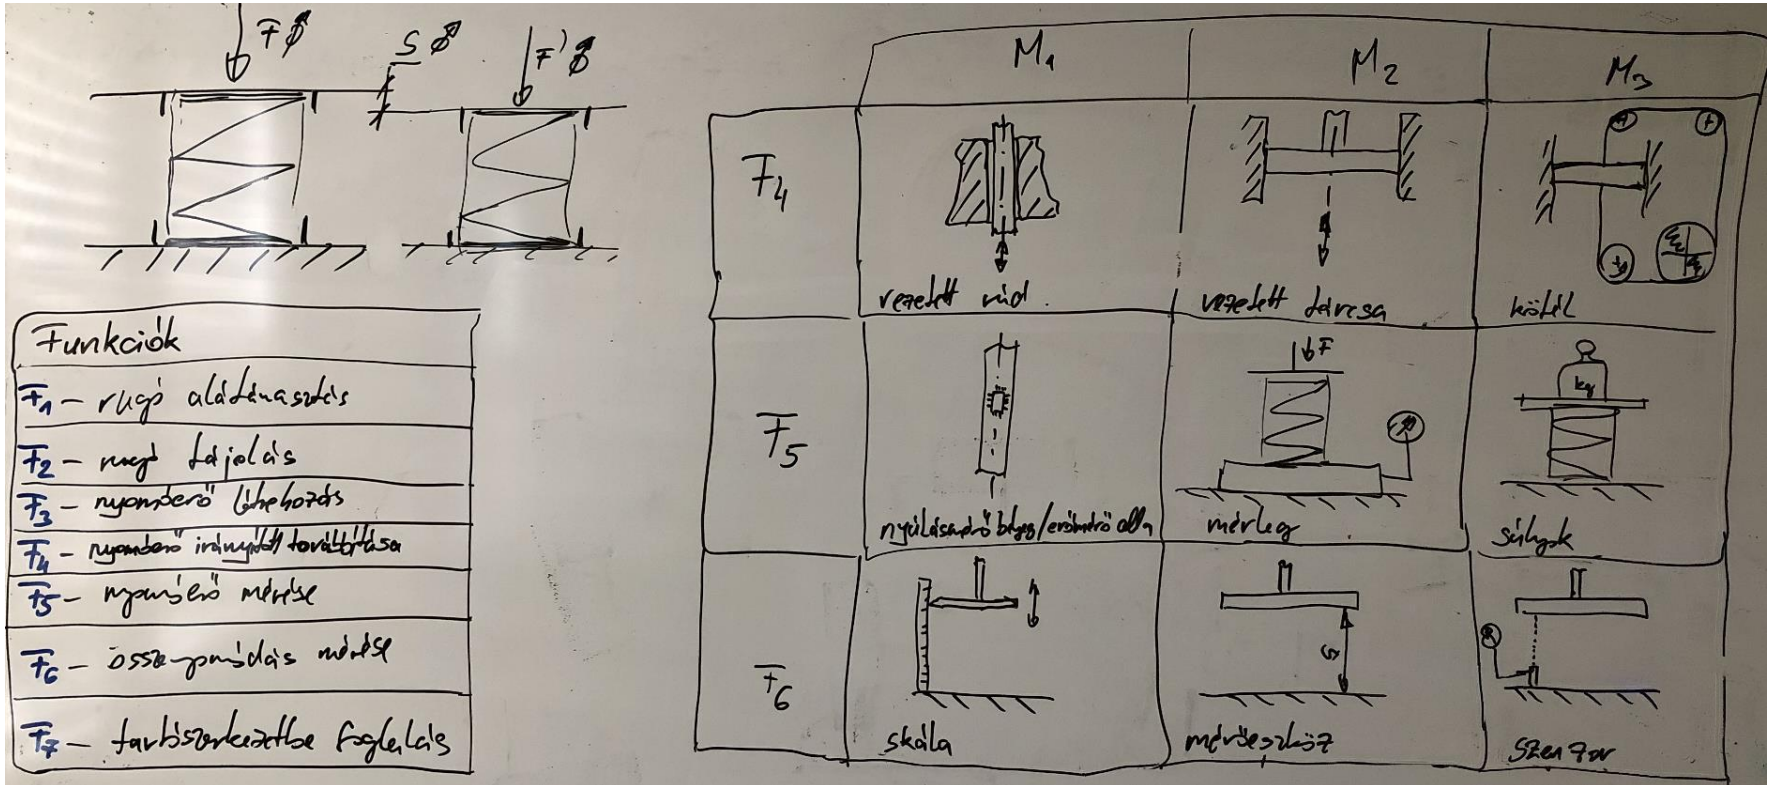 F
S
F'
Funkciók
F1 - rugó alátámasztás
F2 - rugó tájolás
F3 - nyomóerő létrehozás
F4 - nyomóerő irányított továbbítása
F5 - nyomóerő mérése
F6 - összenyomódás mérése
F7 - tartószerkezetbe foglalás
M1 M2 M3
F4
vezetett rúd vezetett tárcsa kötél
F5
F
kg
nyúlásmérő bélyeg/erőmérő cella mérleg súlyok
F6
S
skála mérőeszköz szenzor